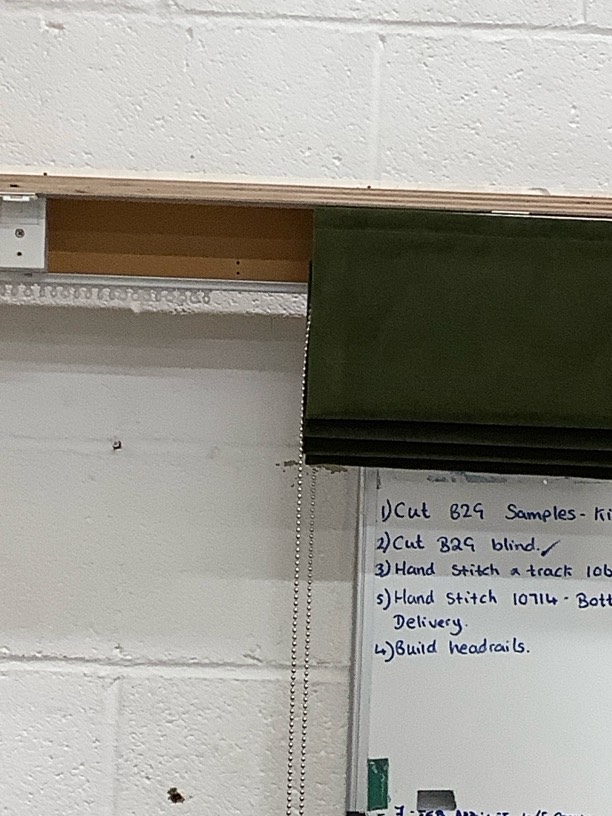 1) Cut B29 Samples - Ki
2) Cut B29 blind. ✓
3) Hand Stitch a track 10b
5) Hand Stitch 10714 - Bott
Delivery.
4) Build headrails.